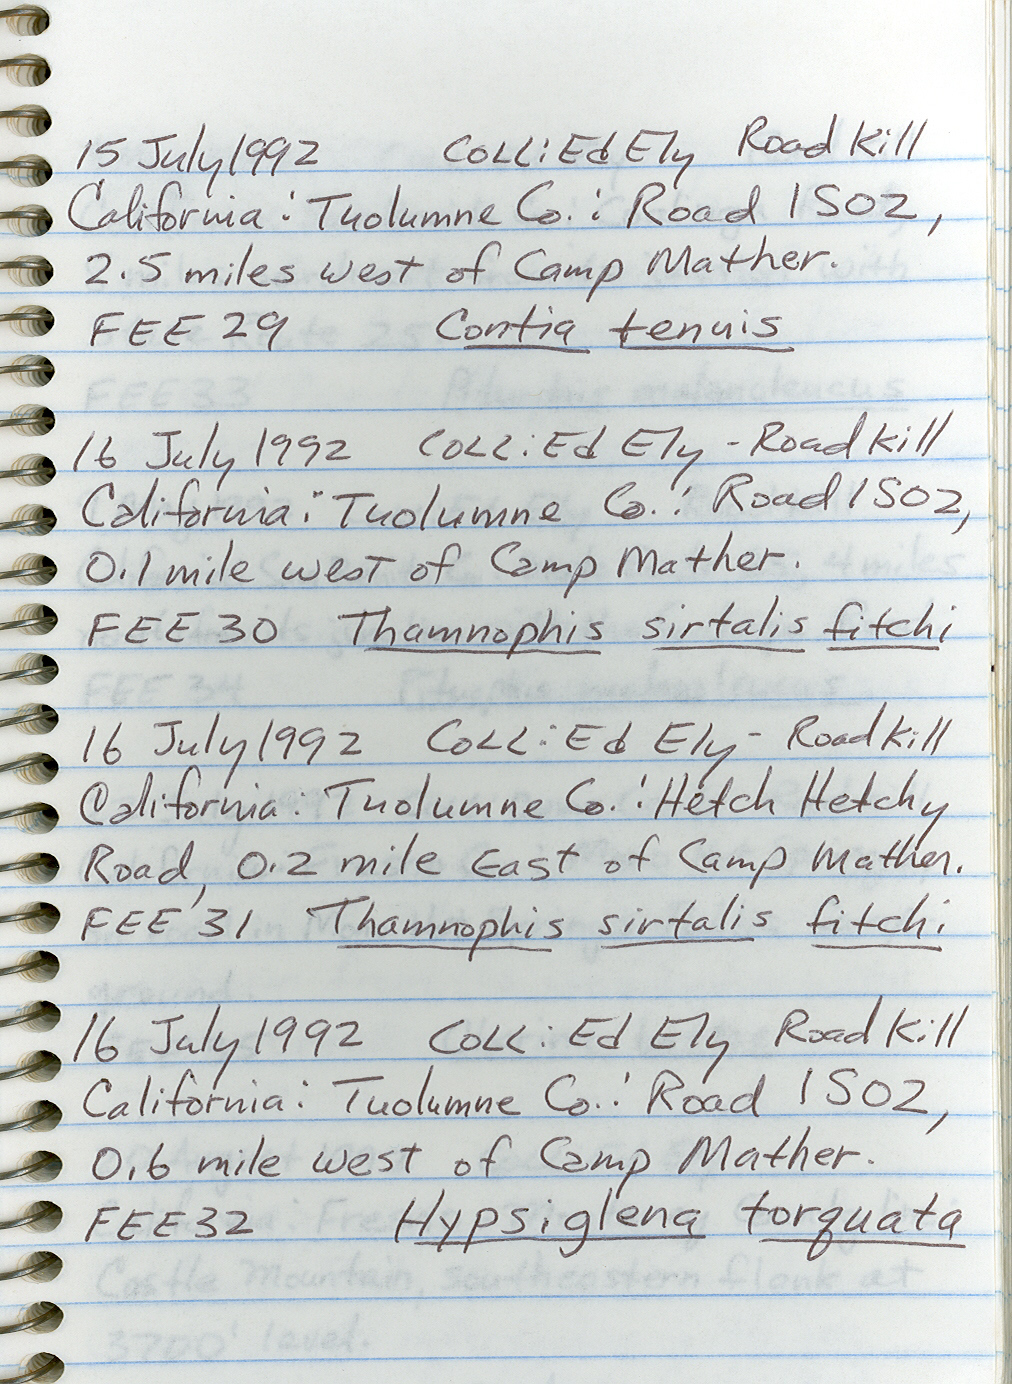 15 July 1992 Coll: Ed Ely Road Kill
California: Tuolumne Co.: Road 1S02,
2.5 miles west of Camp Mather.
FEE 29 Contia tenuis
16 July 1992 Coll: Ed Ely - Road Kill
California: Tuolumne Co.: Road 1S02,
0.1 mile west of Camp Mather.
FEE 30 Thamnophis sirtalis fitchi
16 July 1992 Coll: Ed Ely - Road Kill
California: Tuolumne Co.: Hetch Hetchy
Road, 0.2 mile East of Camp Mather.
FEE 31 Thamnophis sirtalis fitchi
16 July 1992 Coll: Ed Ely Road Kill
California: Tuolumne Co.: Road 1S02,
0.6 mile west of Camp Mather.
FEE 32 Hypsiglena torquata